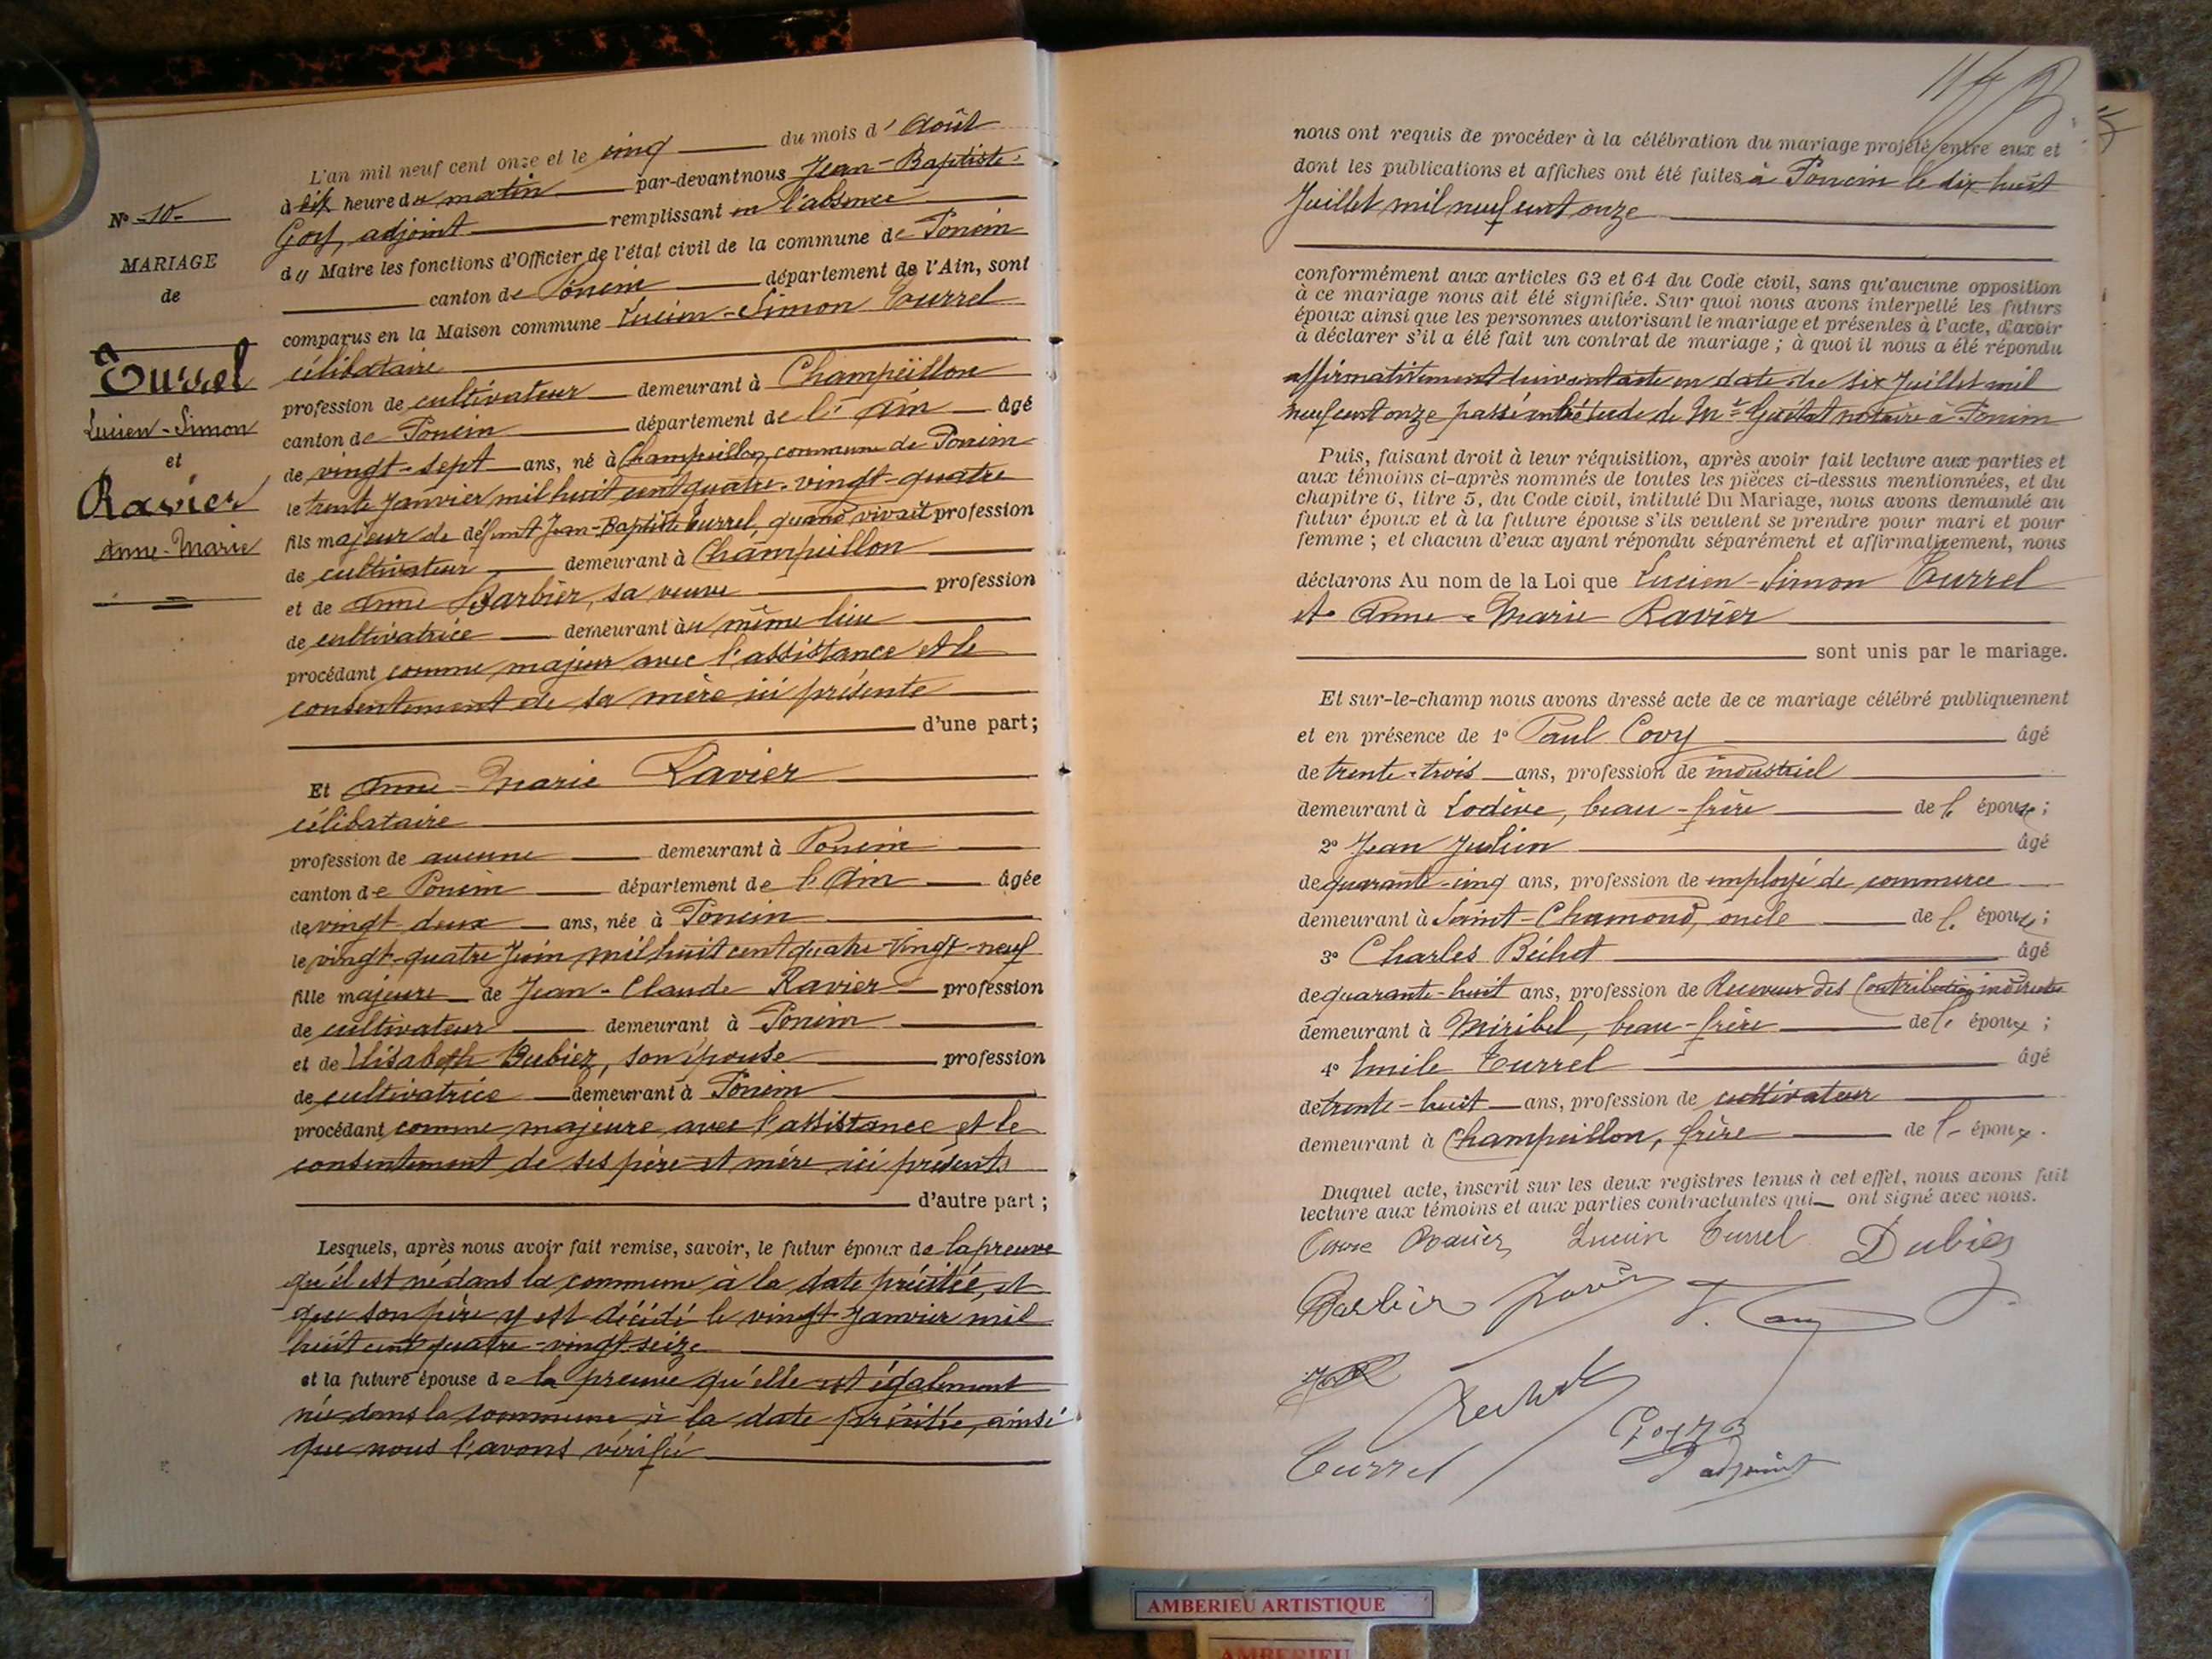 N° 10
MARIAGE
de
Turrel
Lucien-Simon
et
Ravier
Anne-Marie
L'an mil neuf cent onze et le cinq du mois d'Août
à dix heure du matin par-devant nous Jean-Baptiste
Goy, adjoint remplissant en l'absence
du Maire les fonctions d'Officier de l'état civil de la commune de Poncin
canton de Poncin département de l'Ain, sont
comparus en la Maison commune Lucien-Simon Turrel
célibataire
profession de cultivateur demeurant à Champeillon
canton de Poncin département de l'Ain âgé
de vingt-sept ans, né à Champeillon, commune de Poncin
le trente Janvier mil huit cent quatre-vingt-quatre
fils majeur de défunt Jean-Baptiste Turrel, quand vivait profession
de cultivateur demeurant à Champeillon
et de Anne Barbier, sa veuve profession
de cultivatrice demeurant au même lieu
procédant comme majeur avec l'assistance et le
consentement de sa mère ici présente
d'une part ;
Et Anne-Marie Ravier
célibataire
profession de aucune demeurant à Poncin
canton de Poncin département de l'Ain âgée
de vingt-deux ans, née à Poncin
le vingt-quatre Juin mil huit cent quatre-vingt-neuf
fille majeure de Jean-Claude Ravier profession
de cultivateur demeurant à Poncin
et de Elisabeth Dubiez, son épouse profession
de cultivatrice demeurant à Poncin
procédant comme majeure avec l'assistance et le
consentement de ses père et mère ici présents
d'autre part ;
Lesquels, après nous avoir fait remise, savoir, le futur époux de la preuve
qu'il est né dans la commune à la date précitée, et
que son père y est décédé le vingt Janvier mil
huit cent quatre-vingt-seize
et la future épouse de la preuve qu'elle est également
née dans la commune à la date précitée, ainsi
que nous l'avons vérifié
nous ont requis de procéder à la célébration du mariage projeté entre eux et
dont les publications et affiches ont été faites à Poncin le dix huit
Juillet mil neuf cent onze
conformément aux articles 63 et 64 du Code civil, sans qu'aucune opposition
à ce mariage nous ait été signifiée. Sur quoi nous avons interpellé les futurs
époux ainsi que les personnes autorisant le mariage et présentes à l'acte, d'avoir
à déclarer s'il a été fait un contrat de mariage ; à quoi il nous a été répondu
affirmativement suivant acte en date du six Juillet mil
neuf cent onze passé en l'étude de Me Guétat notaire à Poncin
Puis, faisant droit à leur réquisition, après avoir fait lecture aux parties et
aux témoins ci-après nommés de toutes les pièces ci-dessus mentionnées, et du
chapitre 6, titre 5, du Code civil, intitulé Du Mariage, nous avons demandé au
futur époux et à la future épouse s'ils veulent se prendre pour mari et pour
femme ; et chacun d'eux ayant répondu séparément et affirmativement, nous
déclarons Au nom de la Loi que Lucien-Simon Turrel
et Anne-Marie Ravier
sont unis par le mariage.
Et sur-le-champ nous avons dressé acte de ce mariage célébré publiquement
et en présence de 1° Paul Covy âgé
de trente-trois ans, profession de industriel
demeurant à Lodève, beau-frère de l'épouse ;
2° Jean Julien âgé
de quarante-cinq ans, profession de employé de commerce
demeurant à Saint-Chamond, oncle de l'épouse ;
3° Charles Béchet âgé
de quarante-huit ans, profession de Receveur des Contributions indirectes
demeurant à Miribel, beau-frère de l'époux ;
4° Emile Turrel âgé
de trente-huit ans, profession de cultivateur
demeurant à Champeillon, frère de l'époux.
Duquel acte, inscrit sur les deux registres tenus à cet effet, nous avons fait
lecture aux témoins et aux parties contractantes qui ont signé avec nous.
Lucien Turrel Dubiez
Barbier
Turrel
adjoint
AMBERIEU ARTISTIQUE
AMBERIEU